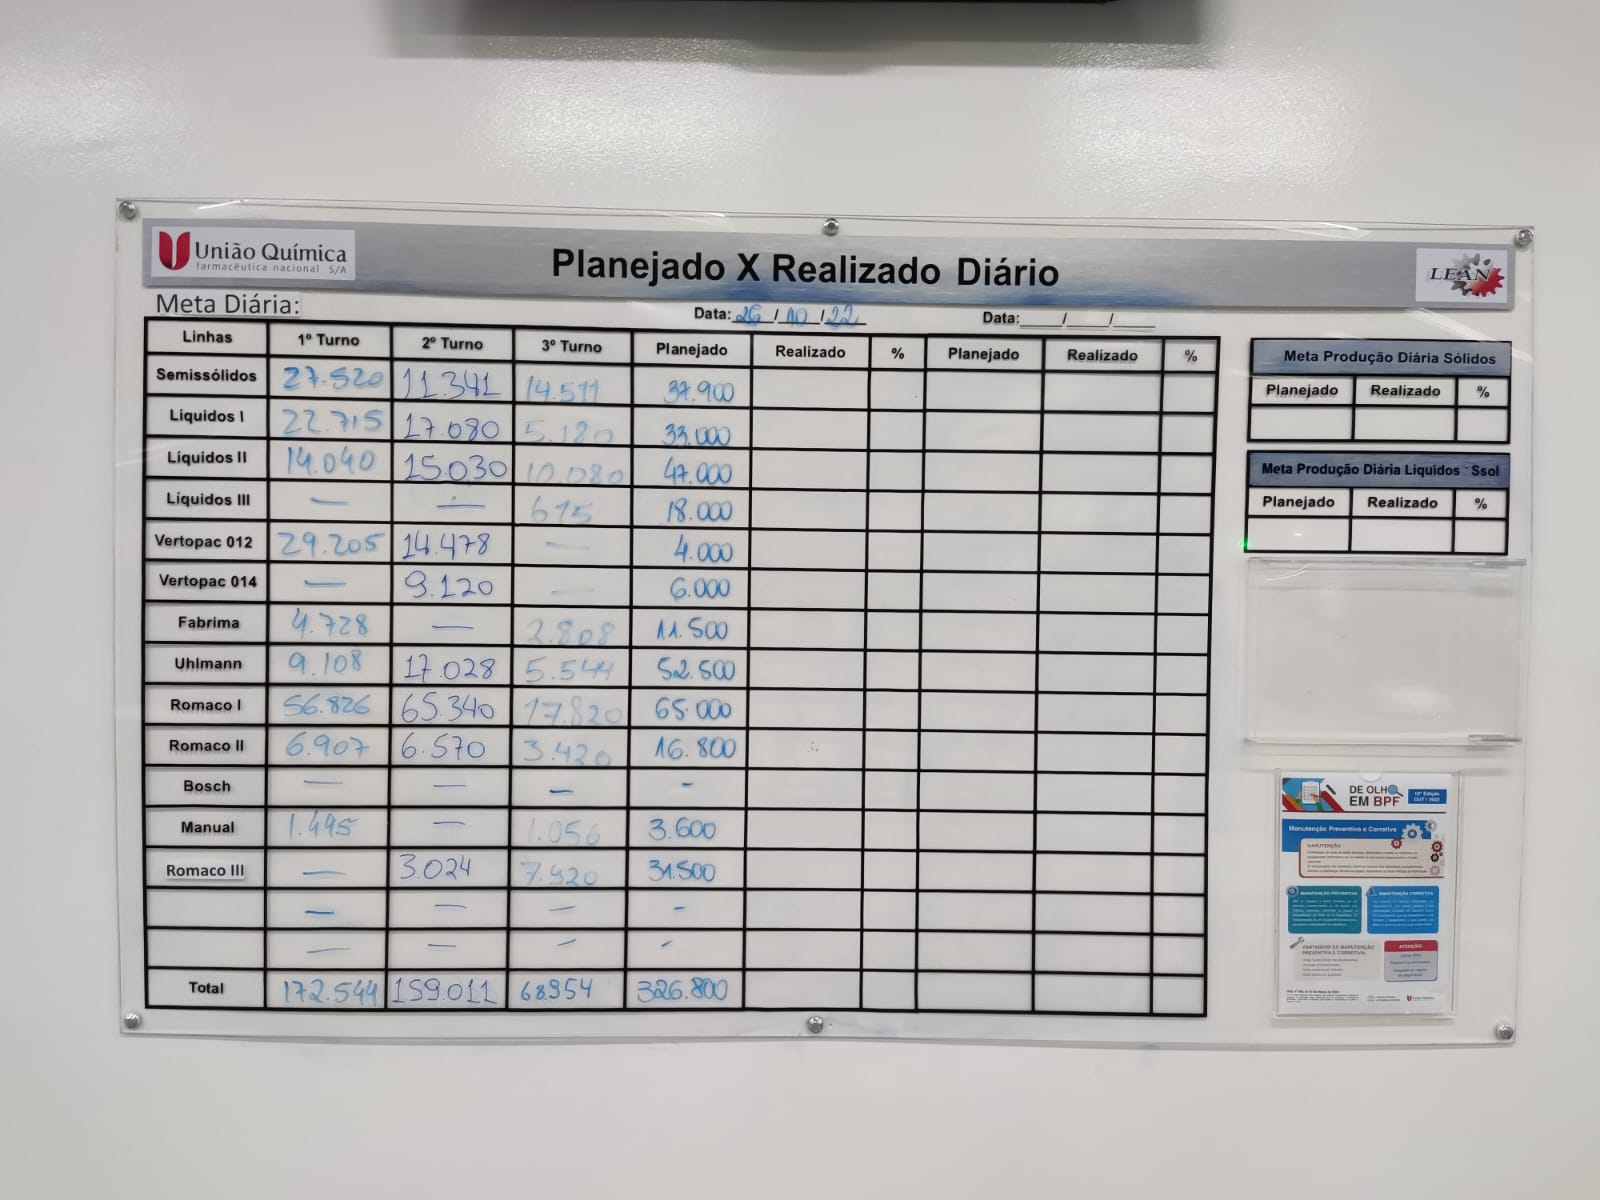 União Química
farmacêutica nacional S/A
Planejado X Realizado Diário
LEAN
Meta Diária:
Data: 26/10/22 Data:___/___/___
Linhas 1º Turno 2º Turno 3º Turno Planejado Realizado % Planejado Realizado %
Semissólidos 27.520 11.341 14.511 37.900
Líquidos I 22.715 17.080 5.180 33.000
Líquidos II 14.040 15.030 10.080 47.000
Líquidos III — — 615 18.000
Vertopac 012 29.205 14.478 — 4.000
Vertopac 014 — 9.120 — 6.000
Fabrima 4.728 — 2.808 11.500
Uhlmann 9.108 17.028 5.544 52.500
Romaco I 56.826 65.340 17.820 65.000
Romaco II 6.907 6.570 3.420 16.800
Bosch — — — -
Manual 1.495 — 1.056 3.600
Romaco III — 3.024 7.920 31.500
— — — -
— — — -
Total 172.544 159.011 68.954 326.800
Meta Produção Diária Sólidos
Planejado Realizado %
Meta Produção Diária Líquidos Ssol
Planejado Realizado %
DE OLHO
EM BPF
10ª Edição
OUT / 2022
Manutenção Preventiva e Corretiva
MANUTENÇÃO
MANUTENÇÃO PREVENTIVA
MANUTENÇÃO CORRETIVA
VANTAGENS DA MANUTENÇÃO
PREVENTIVA E CORRETIVA:
ATENÇÃO!